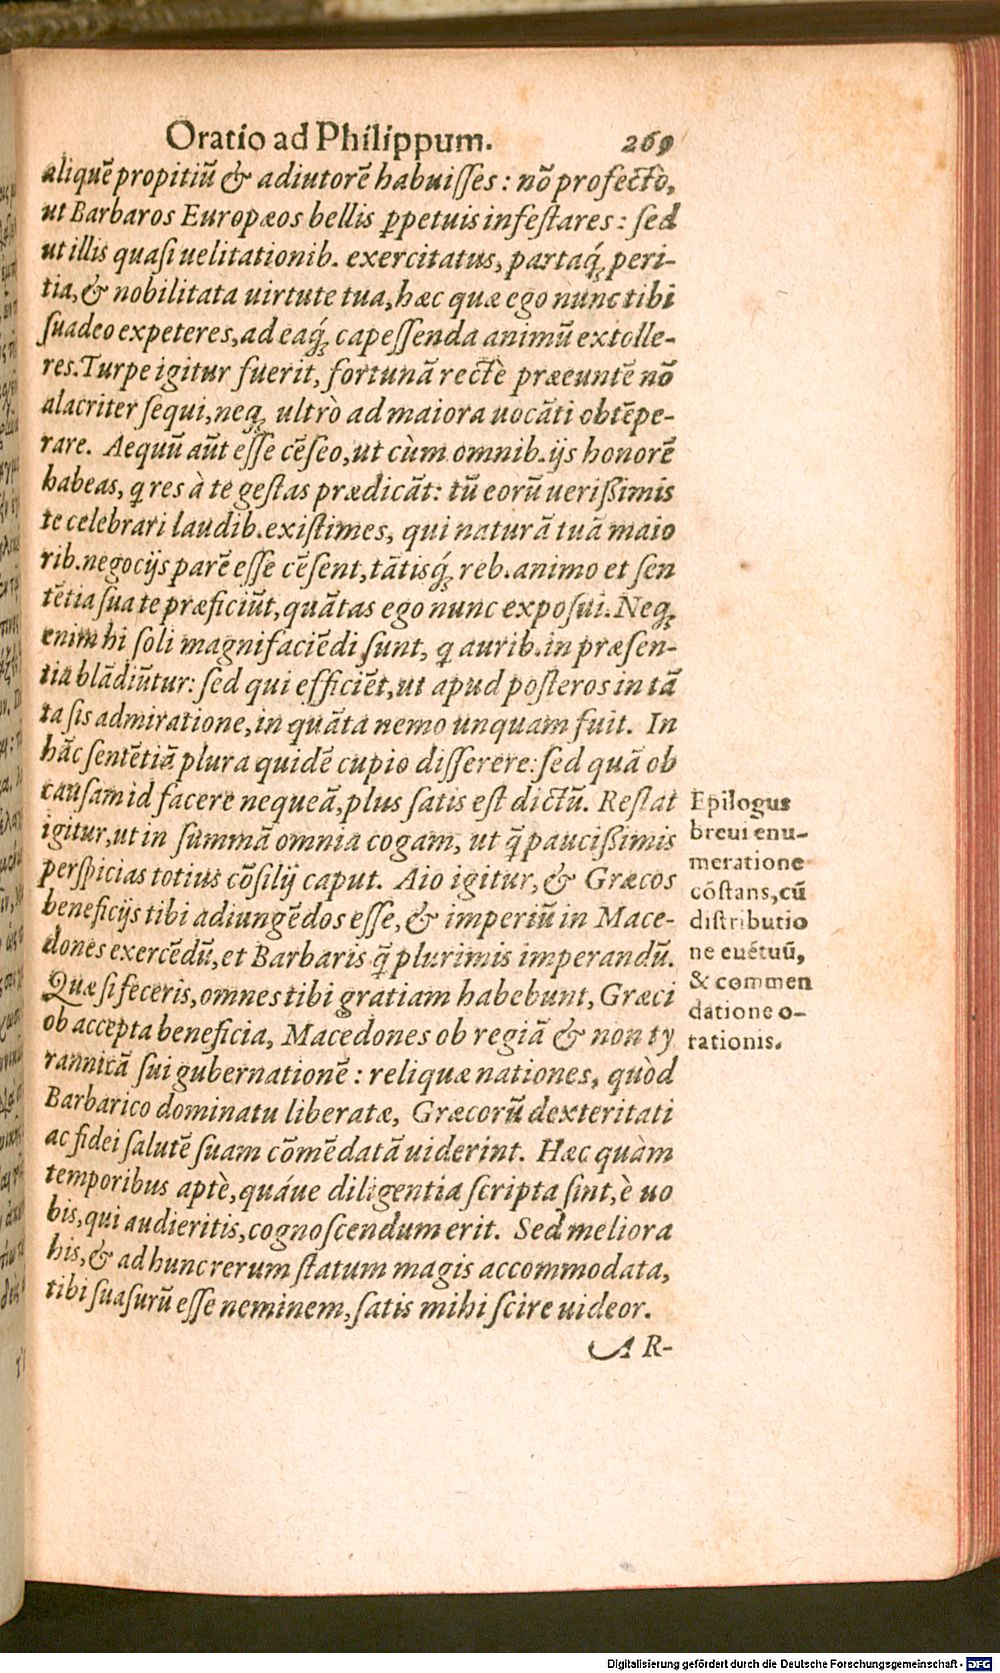 Oratio ad Philippum. 269
aliquē propitiū & adiutorē habuisses: nō profectò,
ut Barbaros Europæos bellis ꝑpetuis infestares: sed
ut illis quasi uelitationib. exercitatus, partaq́; peri-
tia, & nobilitata uirtute tua, hæc quæ ego nunc tibi
suadeo expeteres, ad eaq́; capessenda animū extolle-
res. Turpe igitur fuerit, fortunā rectè præeuntē nō
alacriter sequi, neq; ultrò ad maiora uocāti obtēpe-
rare. Aequū aūt esse cēseo, ut cùm omnib. ijs honorē
habeas, ꝗ res à te gestas prædicāt: tū eorū uerissimis
te celebrari laudib. existimes, qui naturā tuā maio
rib. negocijs parē esse cēsent, tātisq́; reb. animo et sen
tētia sua te præficiūt, quātas ego nunc exposui. Neq;
enim hi soli magnifaciēdi sunt, ꝗ aurib. in præsen-
tia blādiūtur: sed qui efficiēt, ut apud posteros in tā
ta sis admiratione, in quāta nemo unquam fuit. In
hāc sentētiā plura quidē cupio disserere: sed quā ob
causam id facere nequeā, plus satis est dictū. Restat
igitur, ut in summā omnia cogam, ut q̄ paucissimis
perspicias totius cōsilij caput. Aio igitur, & Græcos
beneficijs tibi adiungēdos esse, & imperiū in Mace-
dones exercēdū, et Barbaris q̄ plurimis imperandū.
Quæ si feceris, omnes tibi gratiam habebunt, Græci
ob accepta beneficia, Macedones ob regiā & non ty
rannicā sui gubernationē: reliquæ nationes, quòd
Barbarico dominatu liberatæ, Græcorū dexteritati
ac fidei salutē suam cōmēdatā uiderint. Hæc quàm
temporibus aptè, quáue diligentia scripta sint, è uo
bis, qui audieritis, cognoscendum erit. Sed meliora
his, & ad hunc rerum statum magis accommodata,
tibi suasurū esse neminem, satis mihi scire uideor.
AR-
Epilogus
breui enu-
meratione
cōstans, cū
distributio
ne euētuū,
& commen
datione o-
rationis.
Digitalisierung gefördert durch die Deutsche Forschungsgemeinschaft - DFG